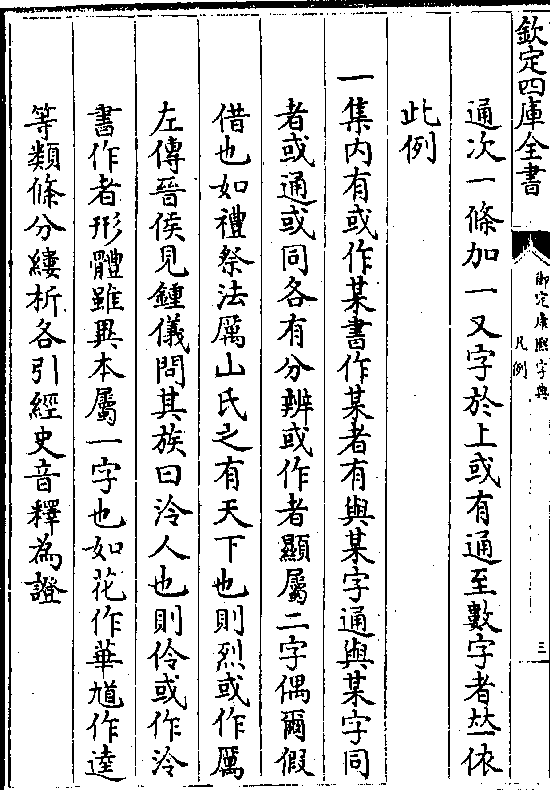 欽定四庫全書
御定康熙字典
凡例
三
通次一條加一又字於上或有通至數字者𠀤依
此例
一集内有或作某書作某者有與某字通與某字同
者或通或同各有分辨或作者顯屬二字偶爾假
借也如禮祭法厲山氏之有天下也則烈或作厲
左傳晉侯見鍾儀問其族曰泠人也則伶或作泠
書作者形體雖異本屬一字也如花作華馗作逵
等類條分縷析各引經史音釋為證